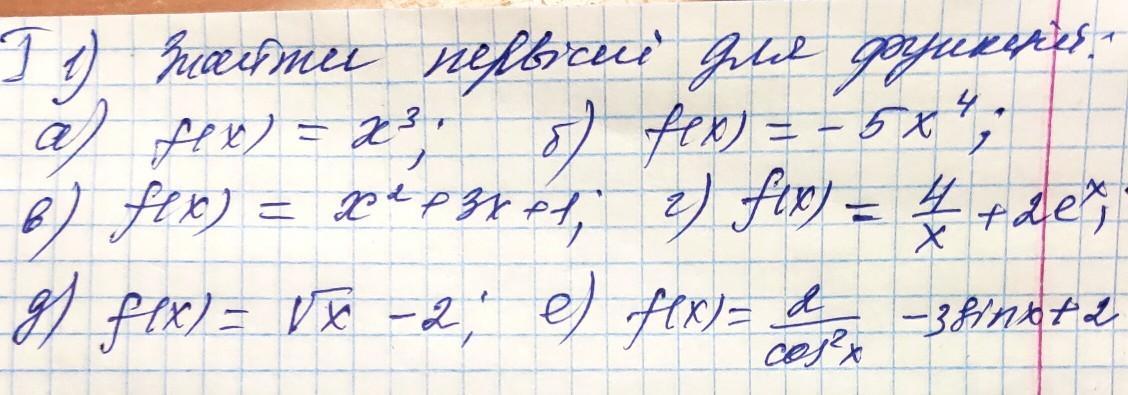 I 1) Найти первыой для функций:
а) f(x) = x³; б) f(x) = -5x⁴;
в) f(x) = x² + 3x + 1; г) f(x) = 4/x + 2eˣ;
д) f(x) = √x - 2; е) f(x) = 2/cos²x - 3sinx + 2